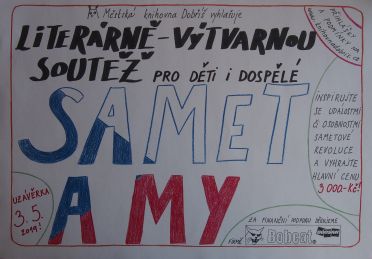 Městská knihovna Dobříš vyhlašuje
LITERÁRNĚ-VÝTVARNOU
SOUTĚŽ PRO DĚTI I DOSPĚLÉ
PŘIHLÁŠKY
A PODMÍNKY NA
www.knihovnadobris.cz
SAMET
A MY
INSPIRUJTE
SE UDÁLOSTMI
ČI OSOBNOSTMI
SAMETOVÉ
REVOLUCE
A VYHRAJTE
HLAVNÍ CENU
3 000.-Kč!
UZÁVĚRKA
3. 5.
2019!
ZA FINANČNÍ PODPORU DĚKUJEME
FIRMĚ Bobcat®